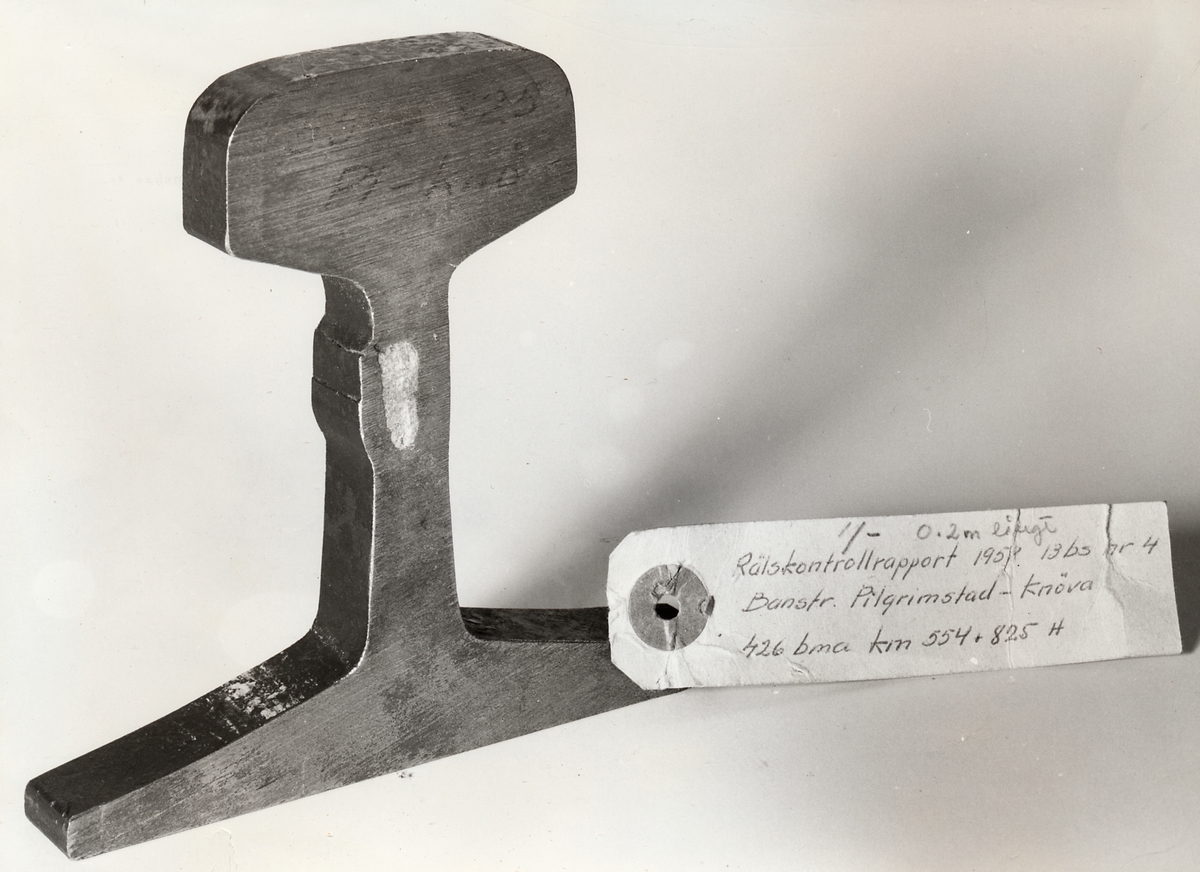 1/- 0.2m långt
Rälskontrollrapport 13bs nr 4
Banstr. Pilgrimstad - Knöva
426 bma km 554+825 H